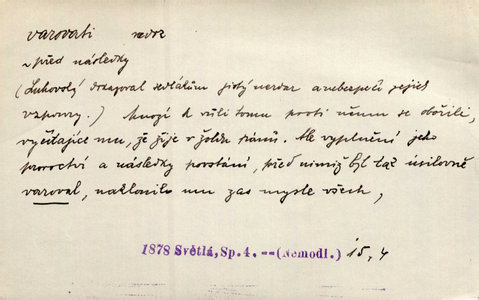 varovati nedok
~ před následky
(Luhovský dokazoval sedlákům jistý nezdar a nebezpečí jejich
vzpoury.) Mnozí k vůli tomu proti němu se obořili,
vyčítajíce mu, že žije v žoldu pánů. Ale vyplnění jeho
proroctví a následky povstání, před nimiž byl tak úsilovně
varoval, naklonilo mu zas mysle všech,
1878 Světlá, Sp. 4. --(Nemodl.) 15, 4